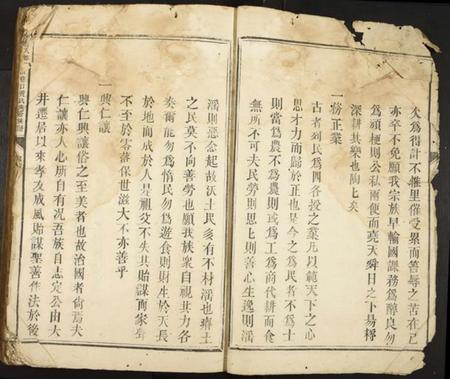 失為得計不惟里催受累而笞辱之苦在己
亦卒不免願我宗族早輸國課務為醇良勿
為頑梗則公私兩便而堯天舜日之下易耨
深耕其樂也陶七矣
一務正業
古者列民為四各授之業凡以範天下之心
思才力而歸於正也是今之為民者不為士
則當為農不為農則或為工為商代耕而食
無所不可夫民勞則思七則善心生逸則滛
滛則惡念起故沃土民多有不材滛也瘠土
之民莫不向善勞也願我族衆自視其力各
奏爾能勿為惰民勿為遊食則財生於天長
於地而成於人是祖父不失其貽謀而家聲
不至於零落保世滋大不亦善乎
一興仁讓
興仁興讓俗之至美者也故治國者尚焉夫
仁讓亦人心所自有况吾族自志定公由大
井遷居以來孝友成風貽謀聖善作法於後